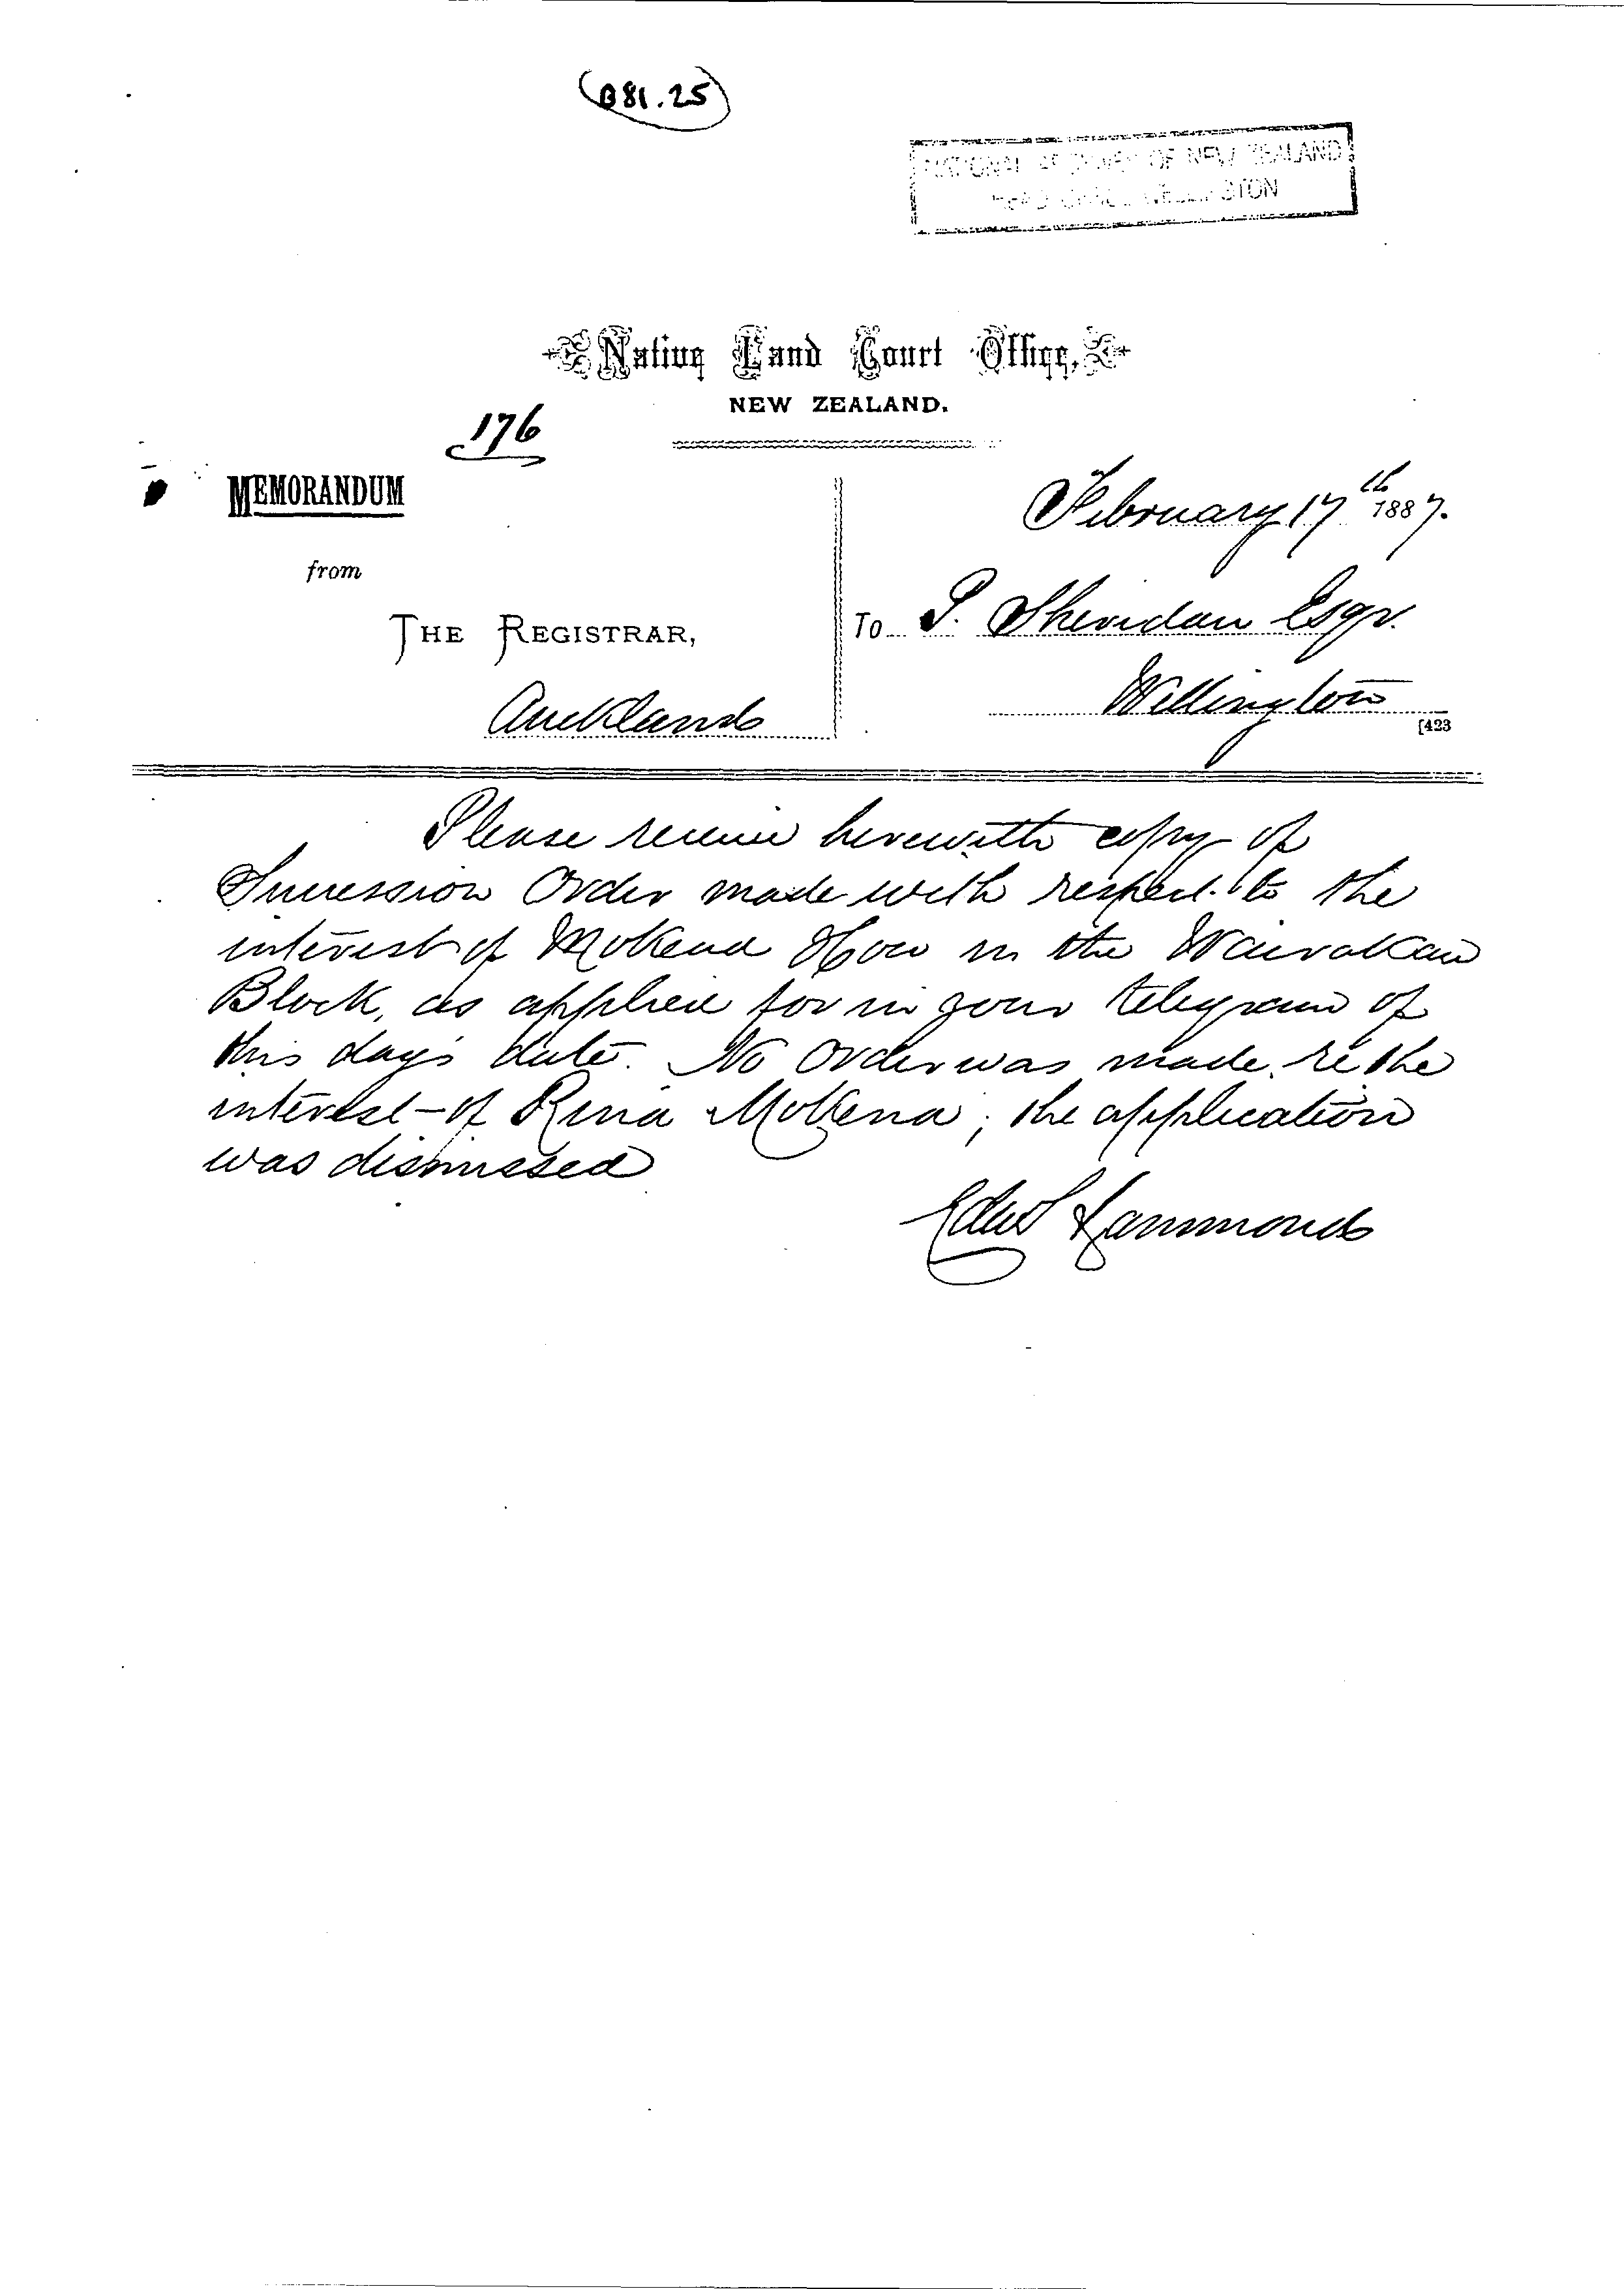 (B81.25)
NATIONAL ARCHIVES OF NEW ZEALAND
HEAD OFFICE WELLINGTON
Native Land Court Office,
NEW ZEALAND.
176
MEMORANDUM
February 17th 1887.
from
THE REGISTRAR,
To P. Sheridan Esqr.
Auckland
Wellington
[423
Please receive herewith copy of
Succession Order made with respect to the
interest of Mokena Hou in the Wairakau
Block, as applied for in your telegram of
this day's date. No Order was made re the
interest of Rina Mokena; the application
was dismissed
Edwd Hammond